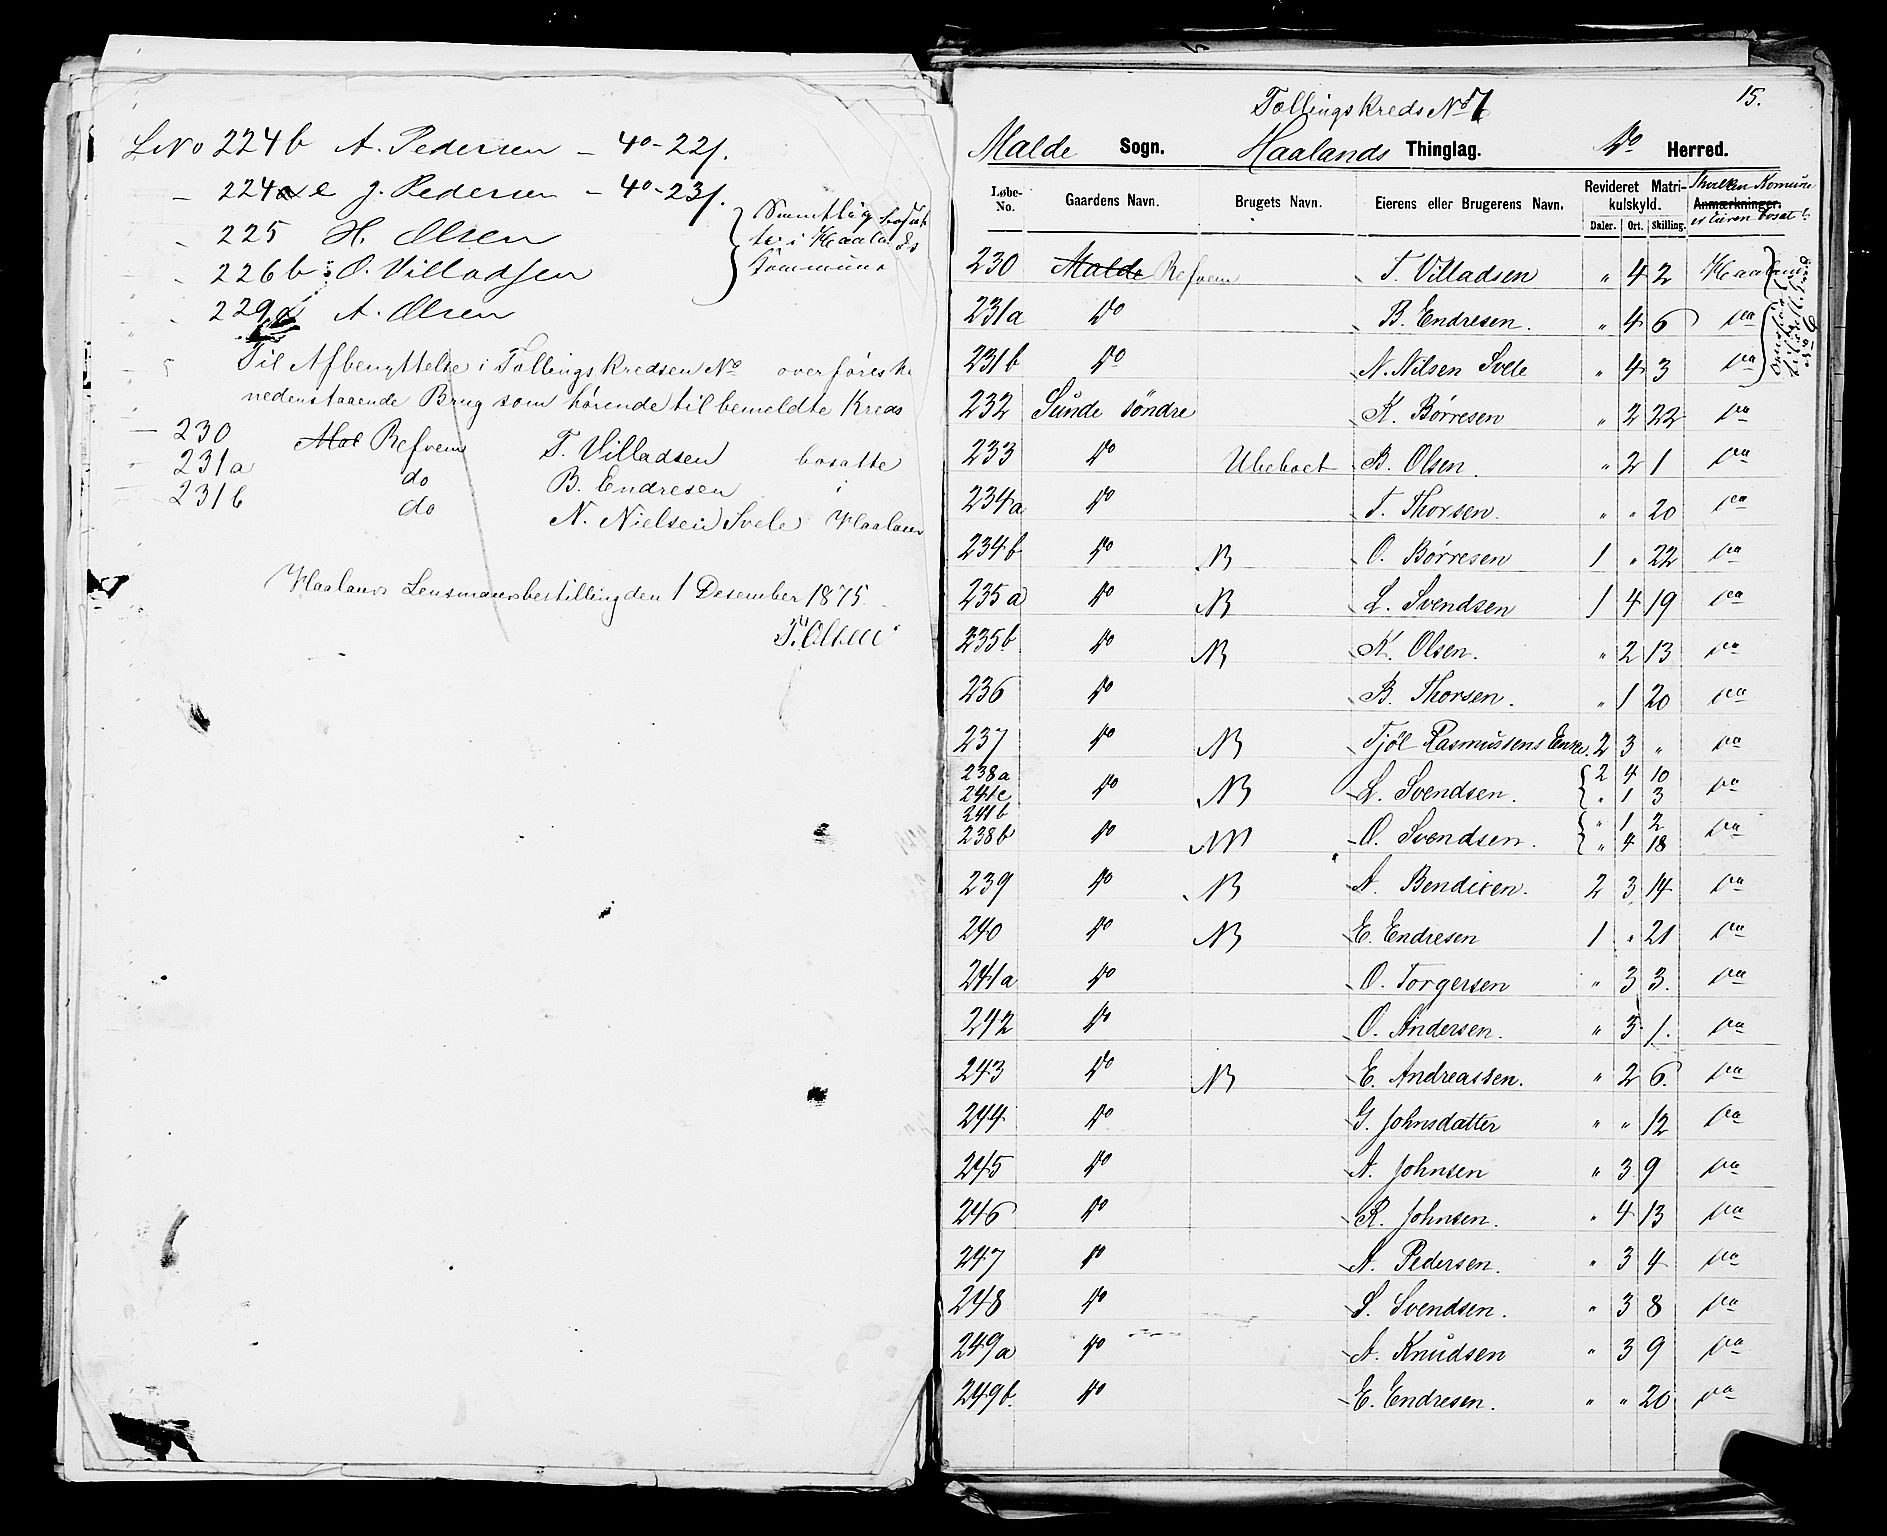 LNo 224b A. Pedersen - 40-22/.
- 224 e J. Pedersen - 40-23/.
225 H. Olsen
226b O. Villadsen
229 A. Olsen
Samtlig bosat
te i Haalands
Kommune
Til Afbenyttelse i Tællingskredsen No overføres
nedenstaaende Brug som hørende til bemeldte Kreds
230 Mal Refvem T. Villadsen bosatte
231a do B. Endresen i
231b do N. Nielsen Svele Haaland
Haalands Lensmandsbestilling den 1 Desember 1875.
T. Olsen
15.
Tællingskreds No 7
Malde Sogn. Haalands Thinglag. Do Herred.
Løbe-No. Gaardens Navn. Brugets Navn. Eierens eller Brugerens Navn. Revideret Matrikulskyld. Hvilken Komune
Anmærkninger.
er Eieren bosat i
Daler. Ort. Skilling.
230 Malde Refvem T. Villadsen " 4 2 Haaland
231a Do B. Endresen. " 4 6 Do
231b Do N. Nilsen Svele " 4 3 Do
232 Sunde söndre K. Børresen " 2 22 Do
233 Do Ubeboet B. Olsen. " 2 1 Do
234a Do T. Thorsen. " " 20 Do
234b Do NB O. Børresen 1 " 22 Do
235a Do NB L. Svendsen 1 4 19 Do
235b Do NB K. Olsen. " 2 13 Do
236 Do B. Thorsen. " 1 20 Do
237 Do NB Tjöl Rasmussens Enke. 2 3 " Do
238a 2 4 10
241c Do NB L. Svendsen. " 1 3 Do
241b " 1 2
238b Do NB O. Svendsen. " 4 18 Do
239 Do NB A. Bendixen. 2 3 14 Do
240 Do NB E. Endresen 1 " 21 Do
241a Do O. Torgersen " 3 3. Do
242 Do O. Andersen. " 3 1. Do
243 Do NB E. Andreassen. " 2 6. Do
244 Do G. Johnsdatter " " 12 Do
245 Do A. Johnsen " 3 9 Do
246 Do R. Johnsen. " 4 13 Do
247 Do A. Pedersen. " 3 4 Do
248 Do S. Svendsen. " 3 8 Do
249a Do A. Knudsen " 3 9 Do
249b. Do E. Endresen. " " 20 Do